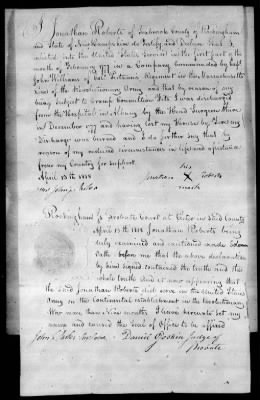 I Jonathan Roberts of Seabrook County of Rockingham
and State of New Hampshire do Testify and Declare that I
inlisted into the United States Service in the first part of the
month of February 1777 in a Company commanded by Capt
John Williams of Col. Regiment in the Massachusetts
Line of the Revolutionary Army and that by reason of my
being subject to Consumption Fits I was discharged
from the Hospital in Albany by the Head Surgeon there
in December 1777 and having lost my Honorable
Discharge was burned and I do further say that by
reason of my reduced circumstances in life
from my Country for support
April 13th 1818
his
Jonathan X Roberts
mark
Rockingham ss Probate Court at Exeter in said County
April 13th 1818 Jonathan Roberts being
duly examined and cautioned made Solemn
Oath before me that the above declaration
by him signed contained the truth and the
whole truth And it now appearing that
the said Jonathan Roberts did serve in the United States
Army on the Continental establishment in the Revolutionary
War more than Nine months I have hereunto set my
name and caused the Seal of Office to be affixed
Daniel Judge of
Probate